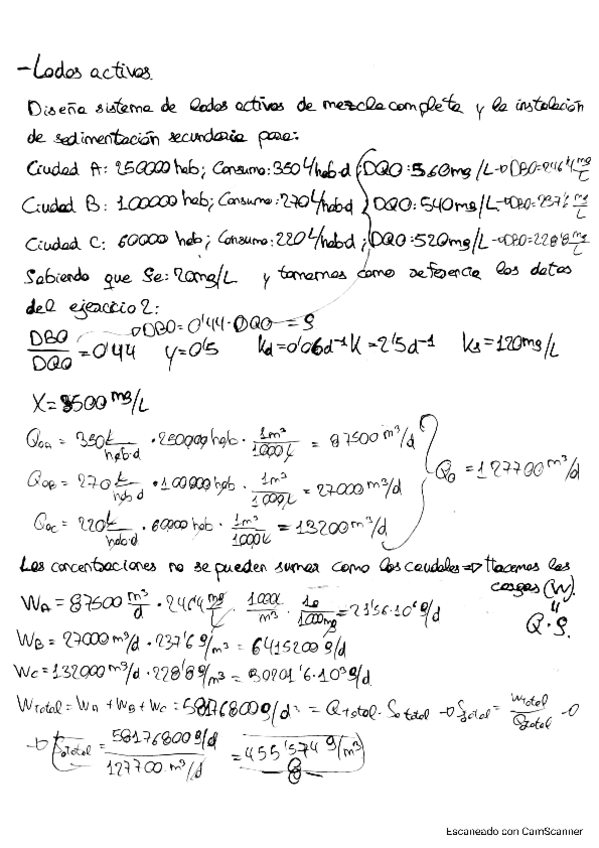 - Lodos activos.
Diseña sistema de lodos activos de mezcla completa y la instalación
de sedimentación secundaria para:
Ciudad A: 250000 hab; Consumo: 350 L/hab·d; DQO: 560 mg/L → DBO=246'4 mg/L
Ciudad B: 100000 hab; Consumo: 270 L/hab·d DQO: 540 mg/L → DBO=237'6 mg/L
Ciudad C: 60000 hab; Consumo: 220 L/hab·d; DQO: 520 mg/L → DBO=228'8 mg/L
Sabiendo que Se: 20mg/L y tomamos como referencia los datos
del ejercicio 2:
DBO/DQO = 0'44 → DBO = 0'44 · DQO = S
Y=0'5 Kd=0'06d⁻¹ K=2'5d⁻¹ Ks=120mg/L
X= 3500 mg/L
Q₀A = 350 L/hab·d · 250000 hab · 1m³/1000L = 87500 m³/d
Q₀B = 270 L/hab·d · 100000 hab · 1m³/1000L = 27000 m³/d
Q₀ = 127700 m³/d
Q₀C = 220 L/hab·d · 60000 hab · 1m³/1000L = 13200 m³/d
Las concentraciones no se pueden sumar como los caudales => Hacemos las
cargas (W).
" Q·S.
WA = 87500 m³/d · 246'4 mg/L · 1000L/m³ · 1g/1000mg = 21'56·10⁶ g/d
WB = 27000 m³/d · 237'6 g/m³ = 6415200 g/d
WC = 132000 m³/d · 228'8 g/m³ = 30201'6·10³ g/d
Wtotal = WA + WB + WC = 58176800 g/d = Qtotal · S₀total → S₀total = Wtotal/Qtotal →
→ S₀total = 58176800 g/d / 127700 m³/d = 455'574 g/m³
Escaneado con CamScanner